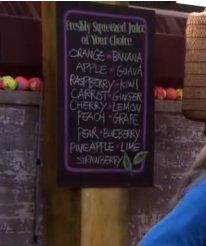 Freshly Squeezed Juice
of Your Choice
ORANGE - BANANA
APPLE - GUAVA
RASPBERRY - KIWI
CARROT - GINGER
CHERRY - LEMON
PEACH - GRAPE
PEAR - BLUEBERRY
PINEAPPLE - LIME
STRAWBERRY